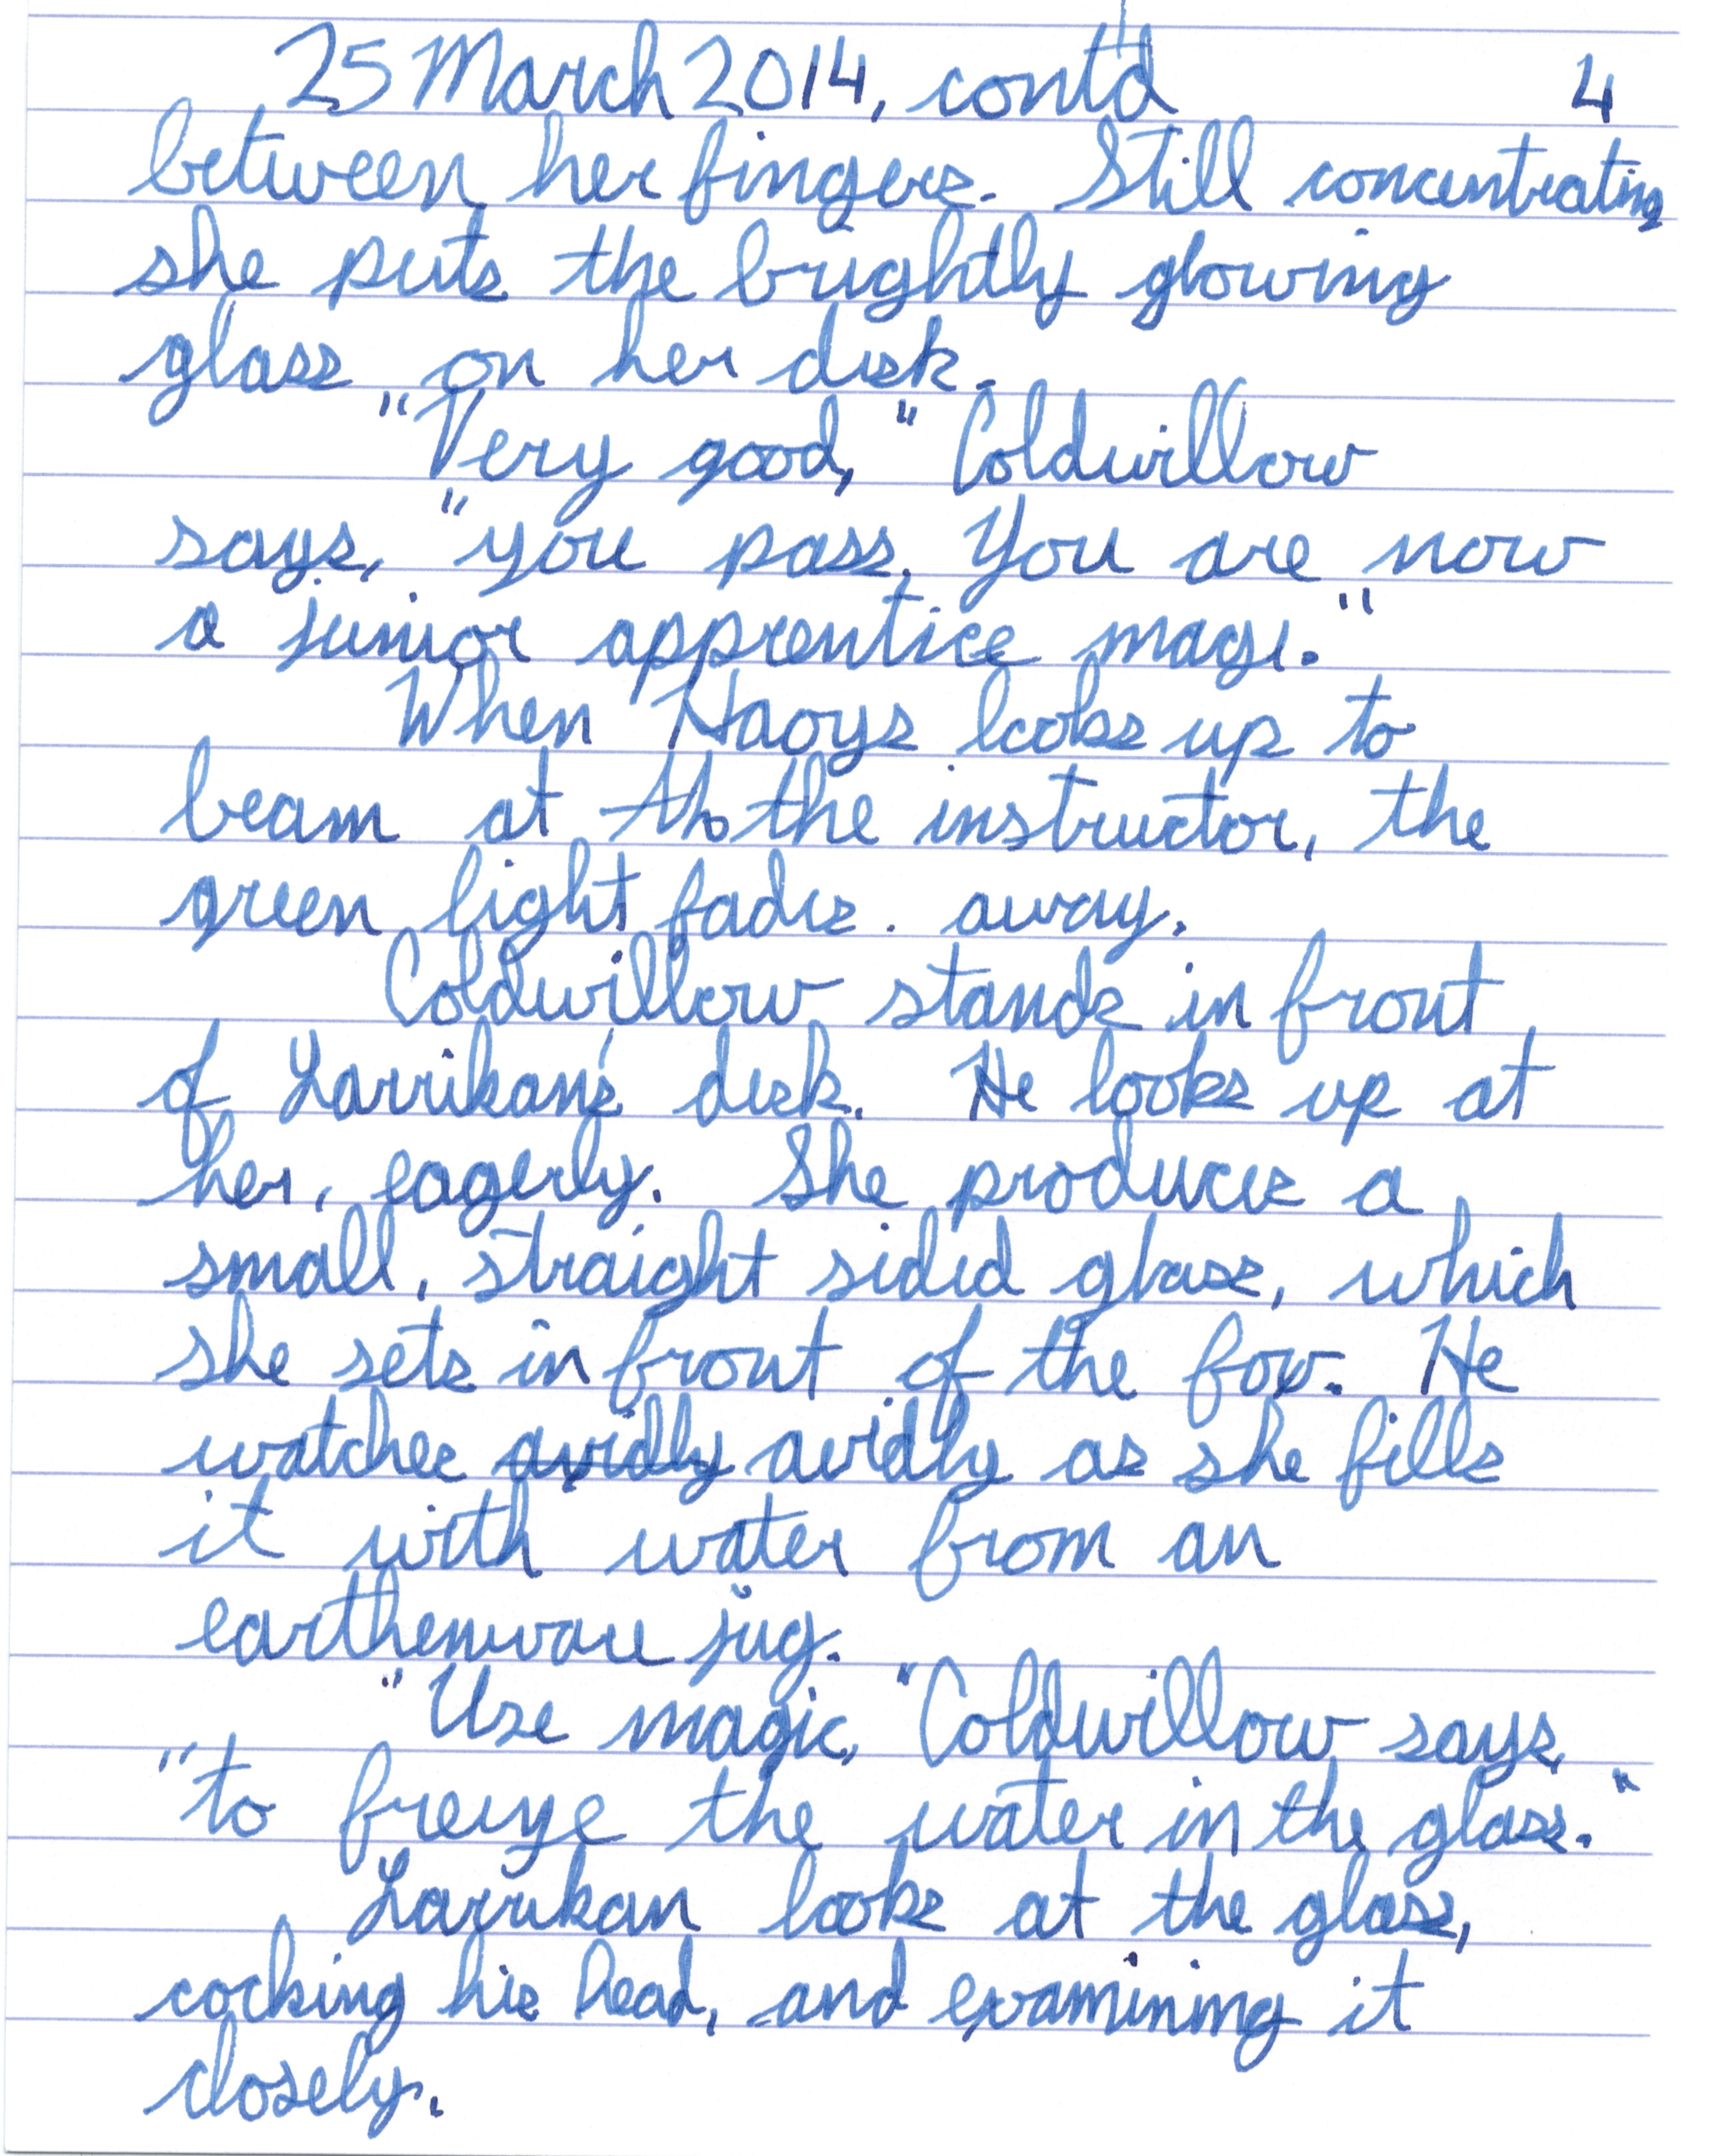 25 March 2014, cont'd 4
between her fingers. Still concentrating
she puts the brightly glowing
glass on her desk.
"Very good," Coldwillow
says, "you pass. You are now
a junior apprentice magi."
When Haoys looks up to
beam at th the instructor, the
green light fades. away.
Coldwillow stands in front
of Larrikan's desk. He looks up at
her, eagerly. She produces a
small, straight sided glass, which
she sets in front of the fox. He
watches avidly avidly as she fills
it with water from an
earthenware jug.
"Use magic," Coldwillow says,
"to freeze the water in the glass."
Larrikan looks at the glass,
cocking his head, and examining it
closely.